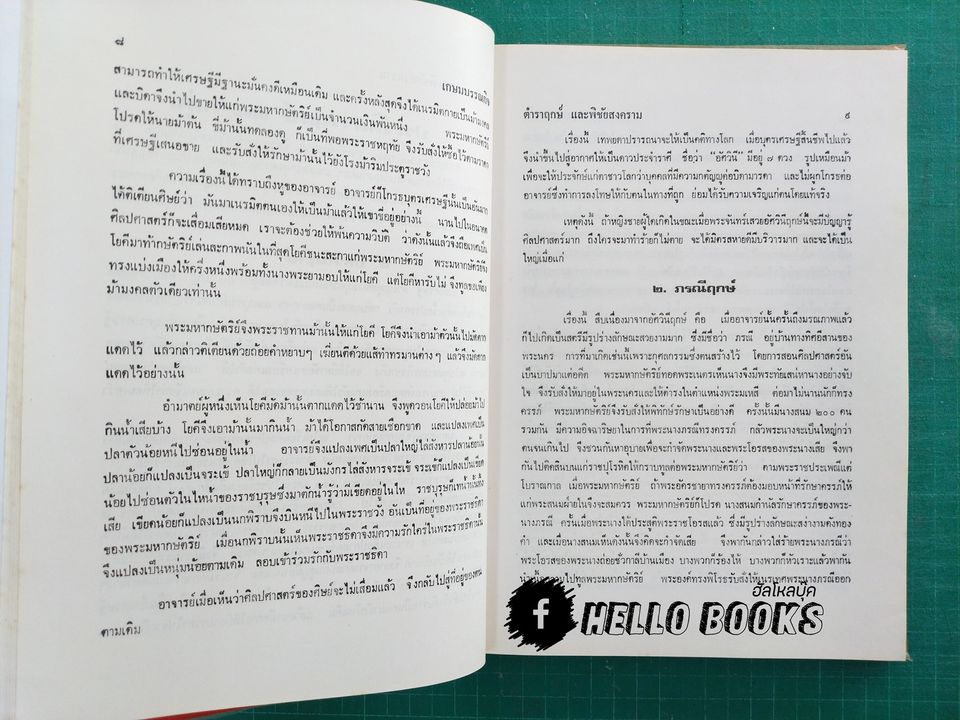 ๘
เกษมบรรณกิจ
สามารถทำให้เศรษฐีมีฐานะมั่นคงดีเหมือนเดิม และครั้งหลังสุดจึงได้เนรมิตกายเป็นม้ามงคล
และบิดาจึงนำไปขายให้แก่พระมหากษัตริย์เป็นจำนวนเงินพันหนึ่ง พระมหากษัตริย์
โปรดให้นายม้าต้น ขี่ม้านั้นทดลองดู ก็เป็นที่พอพระราชหฤทัย จึงรับสั่งให้ซื้อไว้ตามราคา
ที่เศรษฐีเสนอขาย และรับสั่งให้รักษาม้านั้นไว้ยังโรงม้าริมประตูราชวัง
ความเรื่องนี้ได้ทราบถึงหูของอาจารย์ อาจารย์ก็โกรธบุตรเศรษฐีนั้นเป็นอันมาก
ได้ติเตียนศิษย์ว่า มันมาเนรมิตตนเองให้เป็นม้าแล้วให้เขาขี่อยู่อย่างนี้ นานไปในอนาคต
ศิลปศาสตร์ก็จะเสื่อมเสียหมด เราจะต้องช่วยให้พ้นความวิบัติ ว่าดังนั้นแล้วจึงถือเพศเป็น
โยคีมาท้ากษัตริย์เล่นสะกาพนันในที่สุดโยคีชนะสะกาแก่พระมหากษัตริย์ พระมหากษัตริย์จึง
ทรงแบ่งเมืองให้ครึ่งหนึ่งพร้อมทั้งนางพระยามอบให้แก่โยคี แต่โยคีหารับไม่ จึงทูลขอเพียง
ม้ามงคลตัวเดียวเท่านั้น
พระมหากษัตริย์จึงพระราชทานม้านั้นให้แก่โยคี โยคีจึงนำเอาม้าตัวนั้นไปมัดตาก
แดดไว้ แล้วกล่าวติเตียนด้วยถ้อยคำหยาบๆ เฆี่ยนตีด้วยแส้ทำทรมานต่างๆ แล้วจึงมัดตาก
แดดไว้อย่างนั้น
อำมาตย์ผู้หนึ่งเห็นโยคีมัดม้านั้นตากแดดไว้ช้านาน จึงพูดวอนโยคีให้ปล่อยม้าไป
กินน้ำเสียบ้าง โยคีจึงเอาม้านั้นมากินน้ำ ม้าได้โอกาสก็สลายเชือกขาด และแปลงเพศเป็น
ปลาตัวน้อยหนีไปซ่อนอยู่ในน้ำ อาจารย์จึงแปลงเพศเป็นปลาใหญ่ไล่สังหารปลาน้อยนั้น
ปลาน้อยก็แปลงเป็นจระเข้ ปลาใหญ่ก็กลายเป็นมังกรไล่สังหารจระเข้ จระเข้ก็แปลงเป็นเขียด
น้อยไปซ่อนตัวในไหน้ำของราชบุรุษซึ่งมาตักน้ำรู้ว่ามีเขียดอยู่ในไห ราชบุรุษก็เทน้ำนั้นทิ้ง
เสีย เขียดน้อยก็แปลงเป็นนกพิราบจึงบินหนีไปในพระราชวัง อันเป็นที่อยู่ของพระราชธิดา
ของพระมหากษัตริย์ เมื่อนกพิราบนั้นเห็นพระราชธิดาจึงมีความรักใคร่ในพระราชธิดานั้น
จึงแปลงเป็นหนุ่มน้อยตามเดิม ลอบเข้าร่วมรักกับพระราชธิดา
อาจารย์เมื่อเห็นว่าศิลปศาสตร์ของศิษย์จะไม่เสื่อมแล้ว จึงกลับไปสู่ที่อยู่ของตน
ตามเดิม
ตำราฤกษ์ และพิชัยสงคราม ๙
เรื่องนี้ เทพยดาปรารถนาจะให้เป็นคติทางโลก เมื่อบุตรเศรษฐีสิ้นชีพไปแล้ว
จึงนำขึ้นไปสู่อากาศให้เป็นดาวประจำราศี ชื่อว่า "อัศวินี" มีอยู่ ๗ ดวง รูปเหมือนม้า
เพื่อจะให้ประจักษ์แก่ชาวโลกว่าบุคคลที่มีความกตัญญูต่อบิดามารดา และไม่ผูกโกรธต่อ
อาจารย์ซึ่งทำการลงโทษให้กับตนในทางที่ถูก ย่อมได้รับความเจริญแก่ตนโดยแท้จริง
เหตุดังนี้ ถ้าหญิงชายผู้ใดเกิดในขณะเมื่อพระจันทร์เสวยอัศวินีฤกษ์นี้จะมีปัญญารู้
ศิลปศาสตร์มาก ถึงใครจะมาทำร้ายก็ไม่ตาย จะได้มิตรสหายดีมีบริวารมาก และจะได้เป็น
ใหญ่เมื่อแก่
๒. ภรณีฤกษ์
เรื่องนี้ สืบเนื่องมาจากอัศวินีฤกษ์ คือ เมื่ออาจารย์นั้นครั้นถึงมรณภาพแล้ว
ก็ไปเกิดเป็นสตรีมีรูปร่างลักษณะสวยงามมาก ซึ่งมีชื่อว่า ภรณี อยู่บ้านทางทิศอีสานของ
พระนคร การที่มาเกิดเช่นนี้เพราะกุศลกรรมซึ่งตนสร้างไว้ โดยการสอนศิลปศาสตร์อัน
เป็นบาปมาแต่อดีต พระมหากษัตริย์ทอดพระเนตรเห็นนางจึงมีพระทัยเสน่หานางอย่างจับ
ใจ จึงรับสั่งให้มาอยู่ในพระนครและให้ดำรงในตำแหน่งพระมเหสี ต่อมาไม่นานนักก็ทรง
ครรภ์ พระมหากษัตริย์จึงรับสั่งให้พิทักษ์รักษาเป็นอย่างดี ครั้งนั้นมีนางสนม ๒๐๐ คน
รวมกัน มีความอิจฉาริษยาในการที่พระนางภรณีทรงครรภ์ กลัวพระนางจะเป็นใหญ่กว่า
ตนจนเกินไป จึงชวนกันหาอุบายเพื่อจะกำจัดพระนางและพระโอรสของพระนางเสีย จึงพา
กันไปติดสินบนแก่ราชปุโรหิตให้กราบทูลต่อพระมหากษัตริย์ว่า ตามพระราชประเพณีแต่
โบราณกาล เมื่อพระมหากษัตริย์ ถ้าพระอัครชายาทรงครรภ์ต้องมอบหน้าที่รักษาครรภ์ให้
แก่พระสนมฝ่ายในจึงจะสมควร พระมหากษัตริย์ก็โปรด นางสนมกำนัลรักษาครรภ์ของพระ-
นางภรณี ครั้นเมื่อพระนางได้ประสูติพระราชโอรสแล้ว ซึ่งมีรูปร่างลักษณะสง่างามดังทอง
คำ และเมื่อนางสนมเห็นดังนั้นจึงคิดจะกำจัดเสีย จึงพากันกล่าวใส่ร้ายพระนางภรณีว่า
พระโอรสของพระนางน้อยชั่วกาลีบ้านเมือง บางพวกก็ร้องไห้ บางพวกก็หัวเราะแล้วพากัน
ไปทูลพระมหากษัตริย์ พระองค์ทรงพิโรธรับสั่งให้เนรเทศพระนางภรณีออก
ฮัลโหลบุ๊ค
f HELLO BOOKS